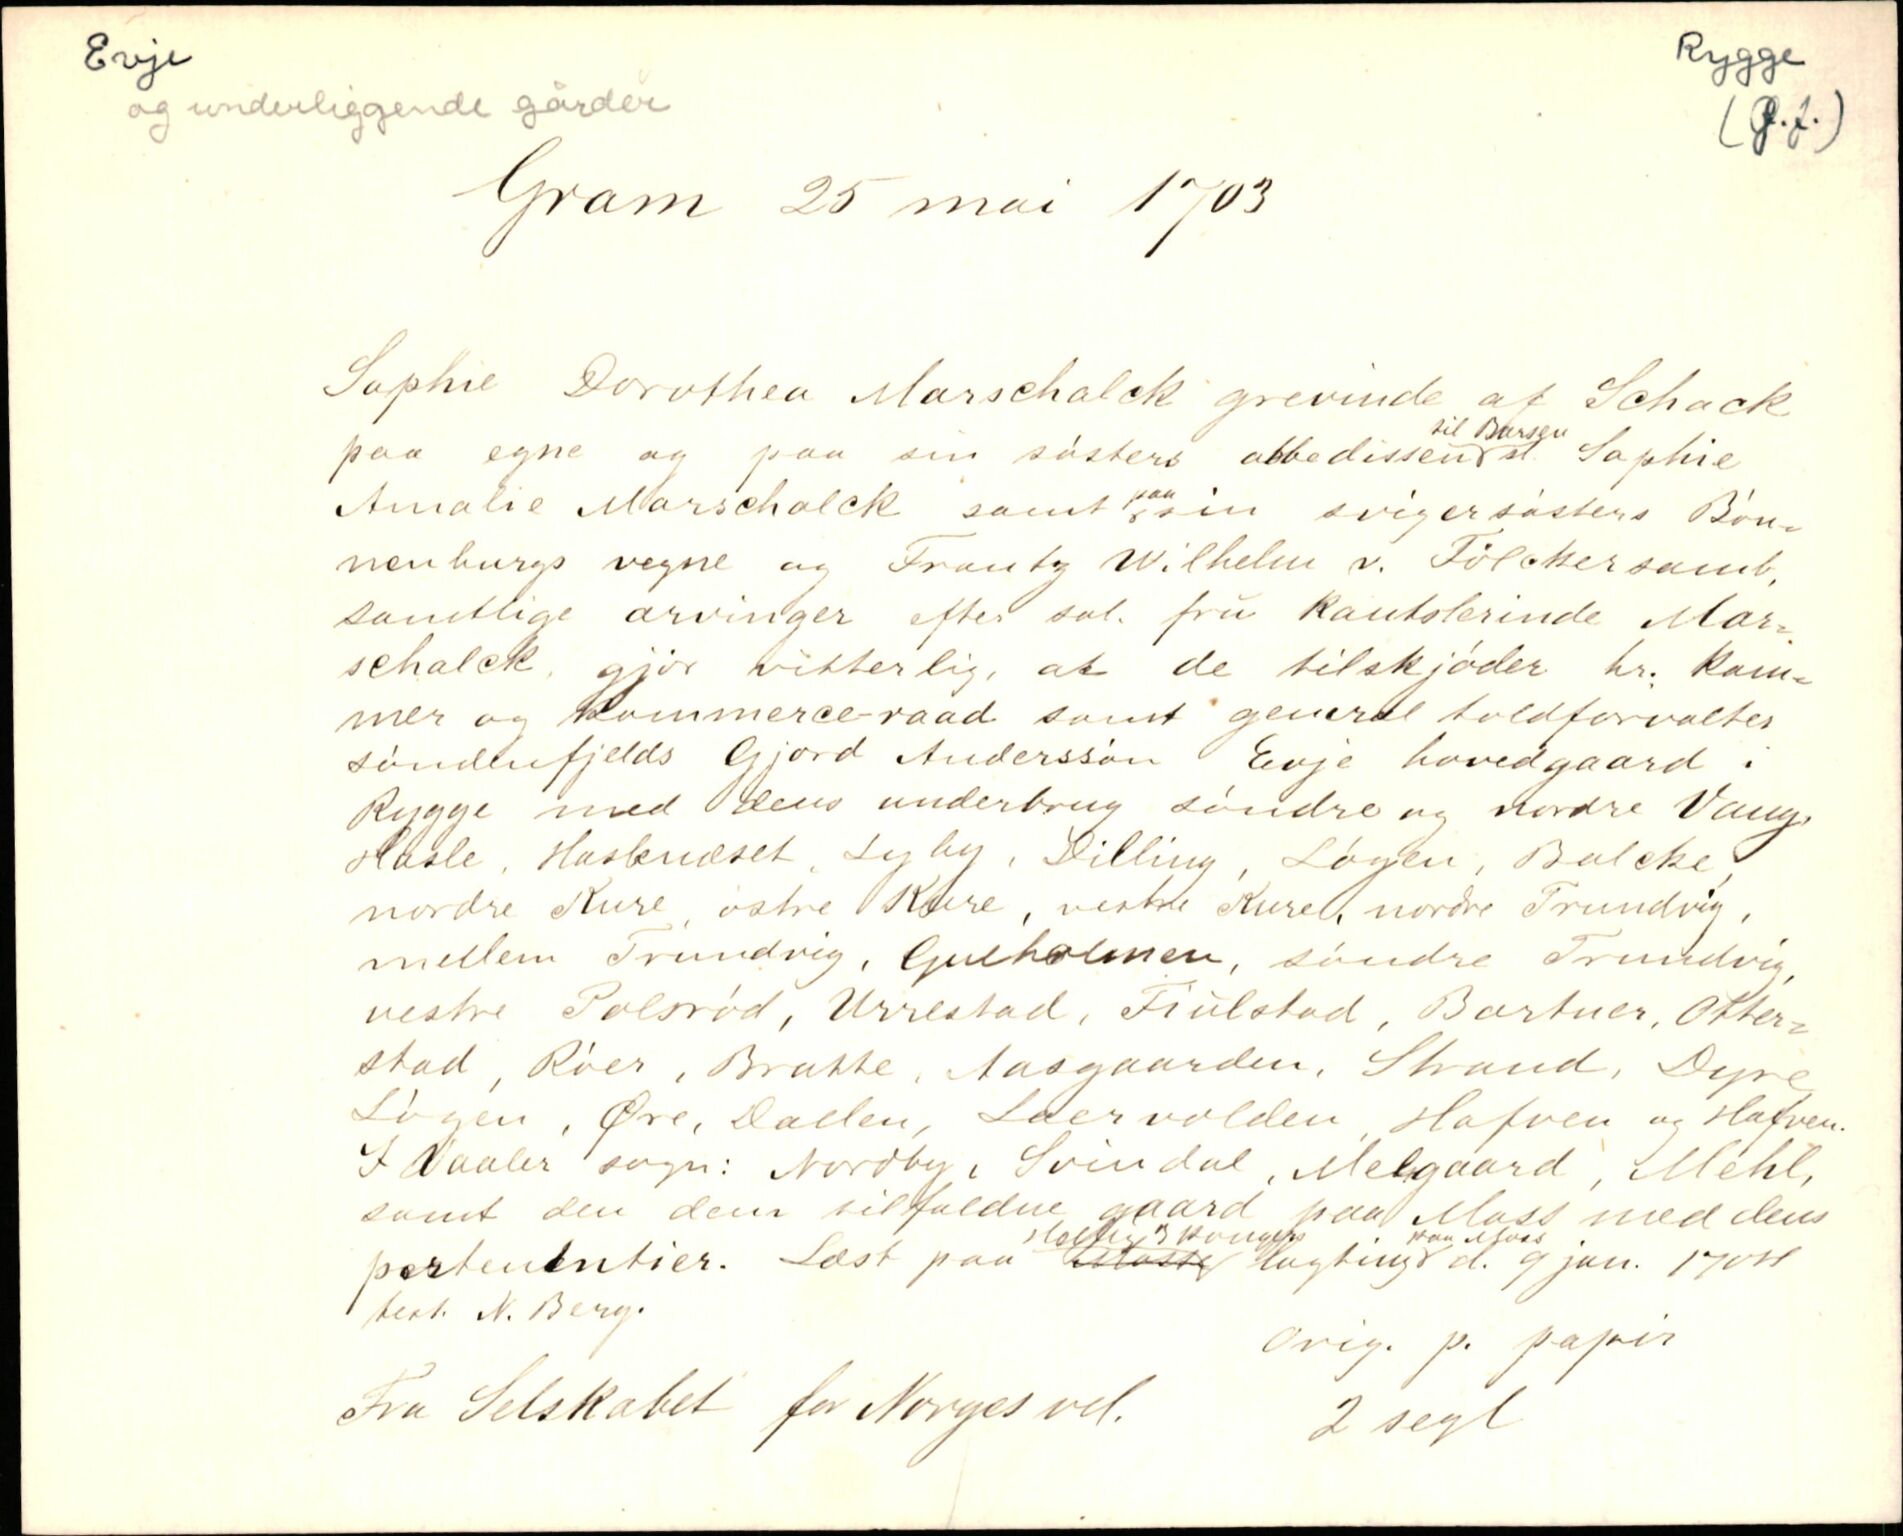 Evje
og underliggende gårder
Rygge
(g.f.)
Gram 25 mai 1703
Sophie Dorothea Marschalck grevinde af Schack
paa egne og paa sin søsters abbedissen til Barsen Sophie
Amalie Marschalck samt paa sin svigersøsters Bön-
nenburgs vegne og Frantz Wilhelm v. Fölckersamb,
samtlige arvinger efter sal. frü Kantslerinde Mar-
schalck, gjør vitterlig, at de tilskjøder hr. kam-
mer og kommerce-raad samt general toldforvalter
søndenfjelds Gjord Anderssøn Evje hovedgaard i
Rygge med dens underbrug søndre og nordre Vang,
Hasle, Haslenæset, Lyby, Dilling, Løgen, Balcke,
nordre Kure, østre Kure, vestre Kure, nordre Trundvig,
mellem Trundvig, Gulholmen, søndre Trundvig,
vestre Polsrød, Urrestad, Fiulstad, Bartner, Otter-
stad, Röer, Bratte, Aasgaarden, Strand, Dyre
Løgen, Øre, Dallen, Laervolden, Hafven og Hafven.
I Vaaler sogn: Nordby, Svindal, Melgaard, Mehl,
samt den dem tilfaldne gaard paa Moss med dens
pertenentier. Læst paa lagting paa Moss d. 9 jan. 1704
test. N. Berg.
Orig. p. papir
Fra Selskabet for Norges vel.
2 segl